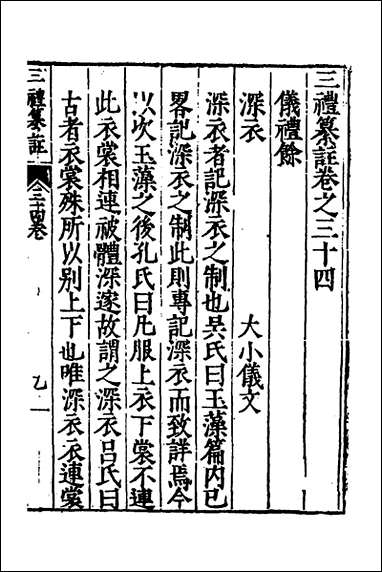 三禮纂註卷之三十四
儀禮餘
深衣 大小儀文
深衣者記深衣之制也吳氏曰玉藻篇内已
畧記深衣之制此則專記深衣而致詳焉今
以次玉藻之後孔氏曰凡服上衣下裳不連
此衣裳相連被體深邃故謂之深衣吕氏曰
古者衣裳殊所以别上下也唯深衣衣連裳
三禮纂註 三十四卷 乙一